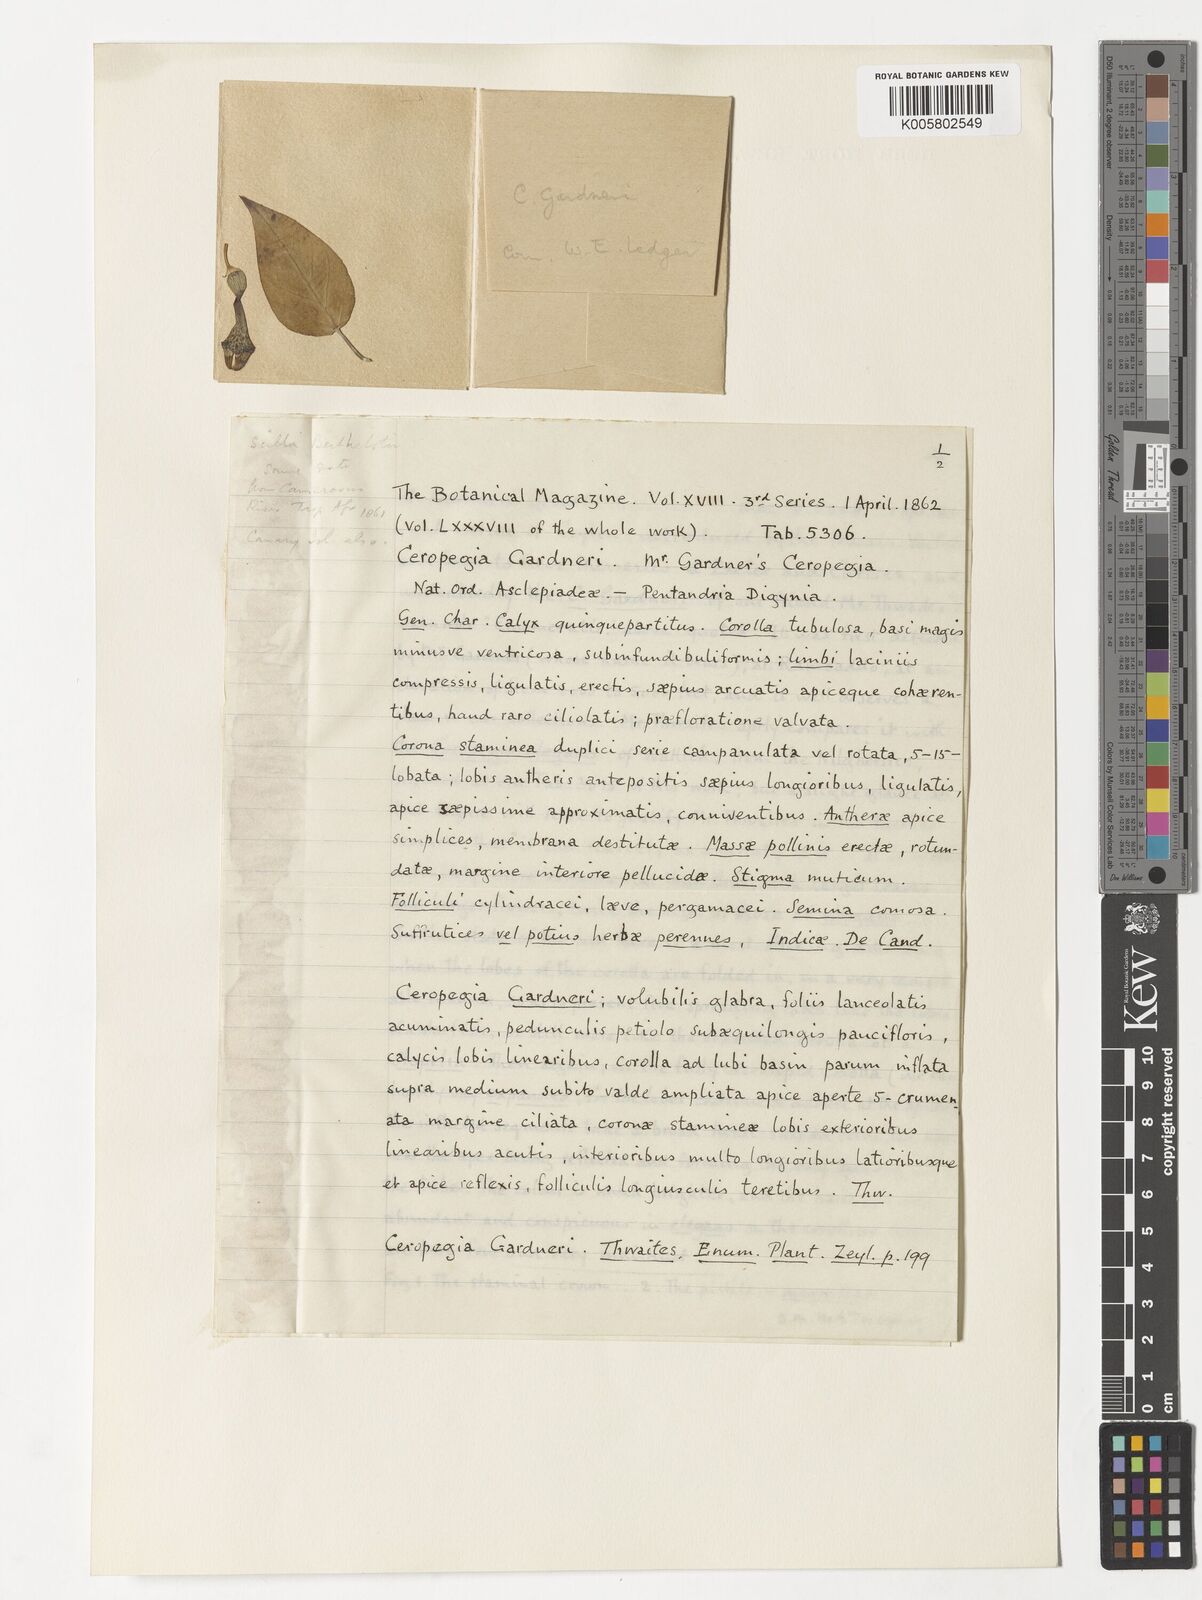 ROYAL BOTANIC GARDENS KEW
K005802549
C. Gardneri
Com. W. E. Ledger
1/2
The Botanical Magazine. Vol. XVIII. 3rd Series. 1 April. 1862
(Vol. LXXXVIII of the whole work). Tab. 5306.
Ceropegia Gardneri. Mr. Gardner's Ceropegia.
Nat. Ord. Asclepiadeæ. — Pentandria Digynia.
Gen. Char. Calyx quinquepartitus. Corolla tubulosa, basi magis
minusve ventricosa, subinfundibuliformis; limbi laciniis
compressis, ligulatis, erectis, sæpius arcuatis apiceque cohæren-
tibus, haud raro ciliolatis; præfloratione valvata.
Corona staminea duplici serie campanulata vel rotata, 5-15-
lobata; lobis antheris antepositis sæpius longioribus, ligulatis,
apice sæpissime approximatis, conniventibus. Antheræ apice
simplices, membrana destitutæ. Massæ pollinis erectæ, rotun-
datæ, margine interiore pellucidæ. Stigma muticum.
Folliculi cylindracei, læve, pergamacei. Semina comosa.
Suffrutices vel potius herbæ perennes, Indicæ. De Cand.
Ceropegia Gardneri; volubilis glabra, foliis lanceolatis
acuminatis, pedunculis petiolo subæquilongis paucifloris,
calycis lobis linearibus, corolla ad lubi basin parum inflata
supra medium subito valde ampliata apice aperte 5-crumen-
ata margine ciliata, coronæ stamineæ lobis exterioribus
linearibus acutis, interioribus multo longioribus latioribusque
et apice reflexis, folliculis longiusculis teretibus. Thw.
Ceropegia Gardneri. Thwaites, Enum. Plant. Zeyl. p. 199
Kew
Royal Botanic Gardens
copyright reserved
0 1 2 3 4 5 6 7 8 9 10
cm
Golden Thread
Density
inches
D50 Illuminant, 2 degree observer
Colors by Munsell Color Services Lab
Don Williams